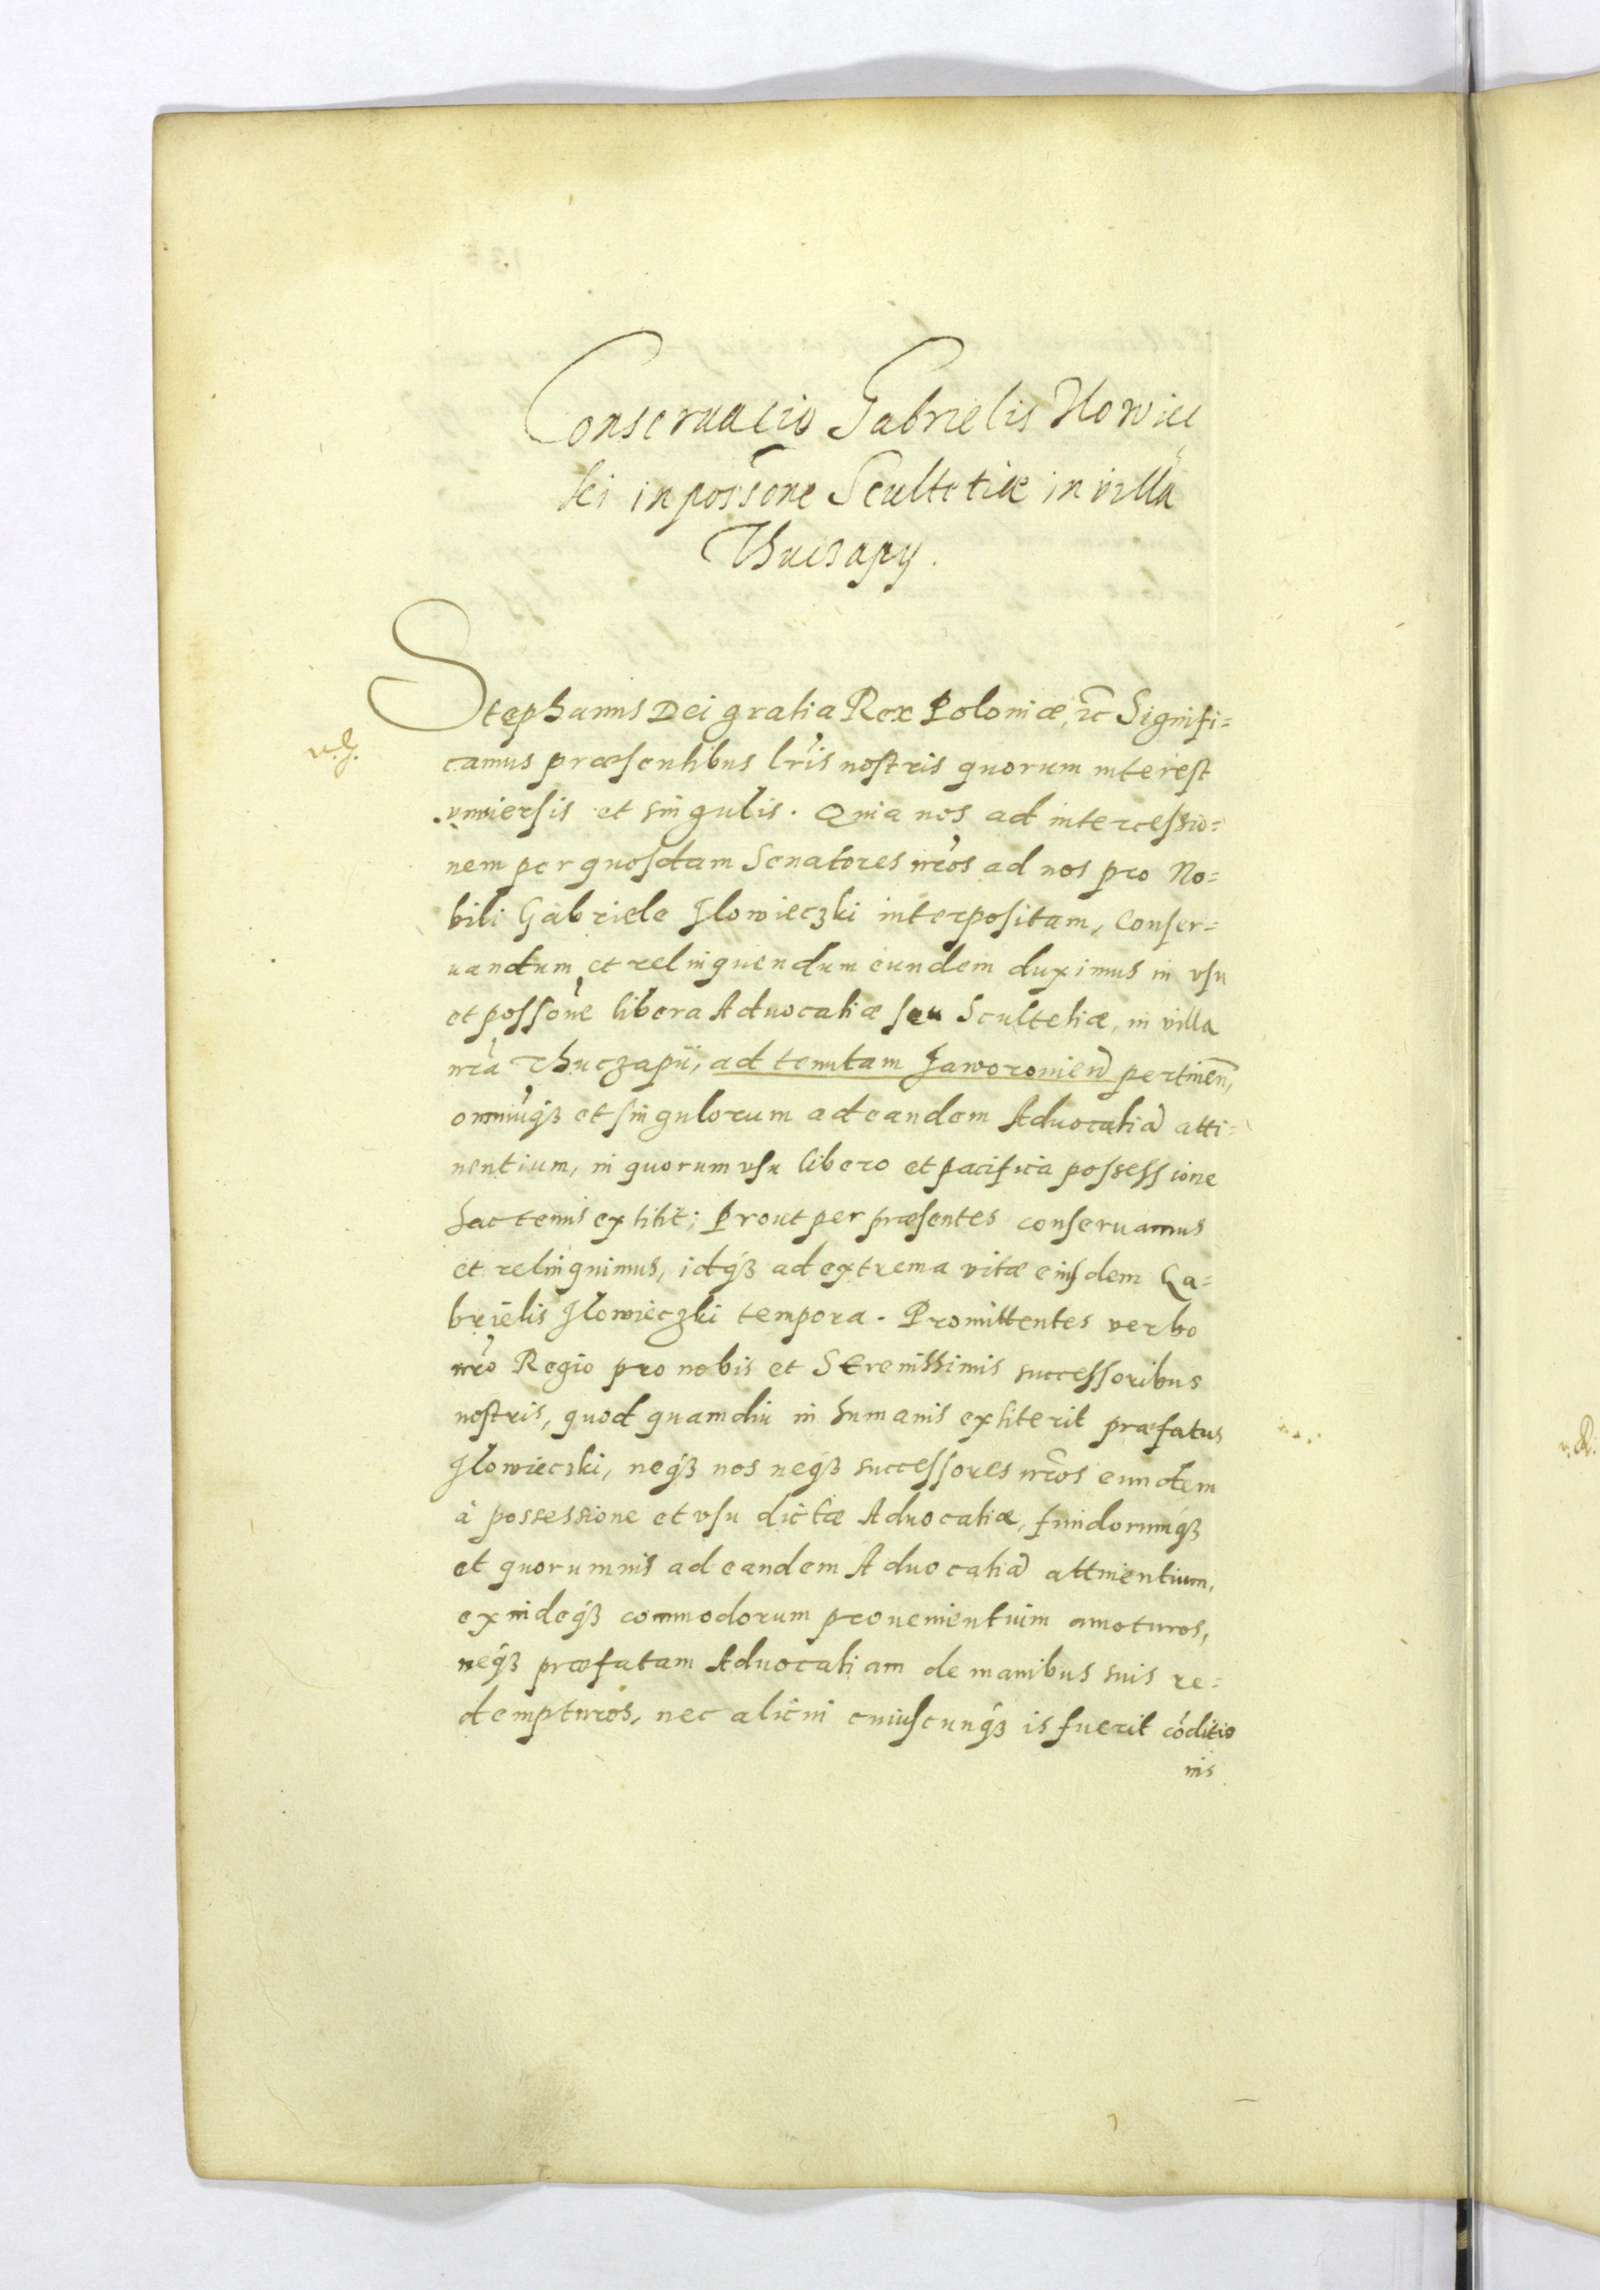 Conseruacio Gabrielis Ilowiec
ki in possone Scultetiæ in villa
Thuczapy.
Stephanus Dei gratia Rex Poloniæ, etc Signifi=
v. J.
camus præsentibus lr̃is nostris quorum interest
vniuersis et singulis. Quia nos ad intercessio=
nem per quosdam Senatores nr̃os ad nos pro No=
bili Gabriele Jlowieczki interpositam, Conser=
uandum et relinquendum eundem duximus in vsu
et possōne libera Aduocatiæ seu Scultetiæ, in villa
nr̃a Thuczapii, ad tenutam Jaworouien̄ pertinen̄,
omniūq̃ et singulorum ad eandem Aduocatiā atti=
nentium, in quorum vsu libero et pacifica possessione
hactenus extitit; Prout per præsentes conseruamus
et relinquimus, idq̃ ad extrema vitæ eiusdem Ga=
brielis Jlowieczki tempora. Promittentes verbo
nr̃o Regio pro nobis et Serenissimis successoribus
nostris, quod quamdiu in humanis extiterit præfatus
Jlowieczki, neq̃ nos neq̃ successores nr̃os eundem
à possessione et vsu dictæ Aduocatiæ, fundorumq̃
et quorumuis ad eandem Aduocatiā attinentium,
exindeq̃ commodorum prouenientium amoturos,
neq̃ præfatam Aduocatiam de manibus suis re=
dempturos, nec alicui cuiuscunq̃ is fuerit cōditio
nis